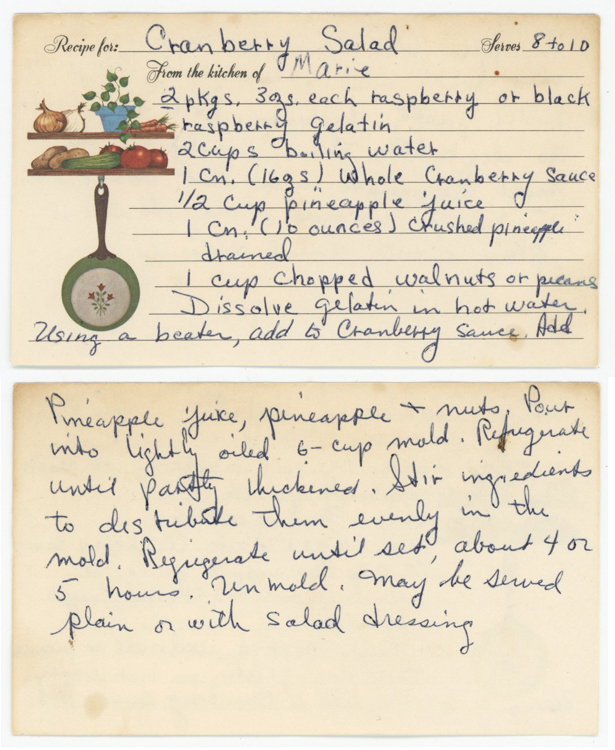 Recipe for: Cranberry Salad Serves 8 to 10
From the kitchen of Marie
2 pkgs. 3 ozs. each raspberry or black
raspberry gelatin
2 cups boiling water
1 Cn. (16 ozs) Whole Cranberry Sauce
1/2 cup pineapple juice
1 Cn. (10 ounces) Crushed pineapple
drained
1 cup chopped walnuts or pecans
Dissolve gelatin in hot water.
Using a beater, add to Cranberry Sauce. Add
Pineapple juice, pineapple + nuts. Pour
into lightly oiled 6-cup mold. Refrigerate
until partly thickened. Stir ingredients
to distribute them evenly in the
mold. Regrigerate until set, about 4 or
5 hours. Unmold. May be served
plain or with salad dressing